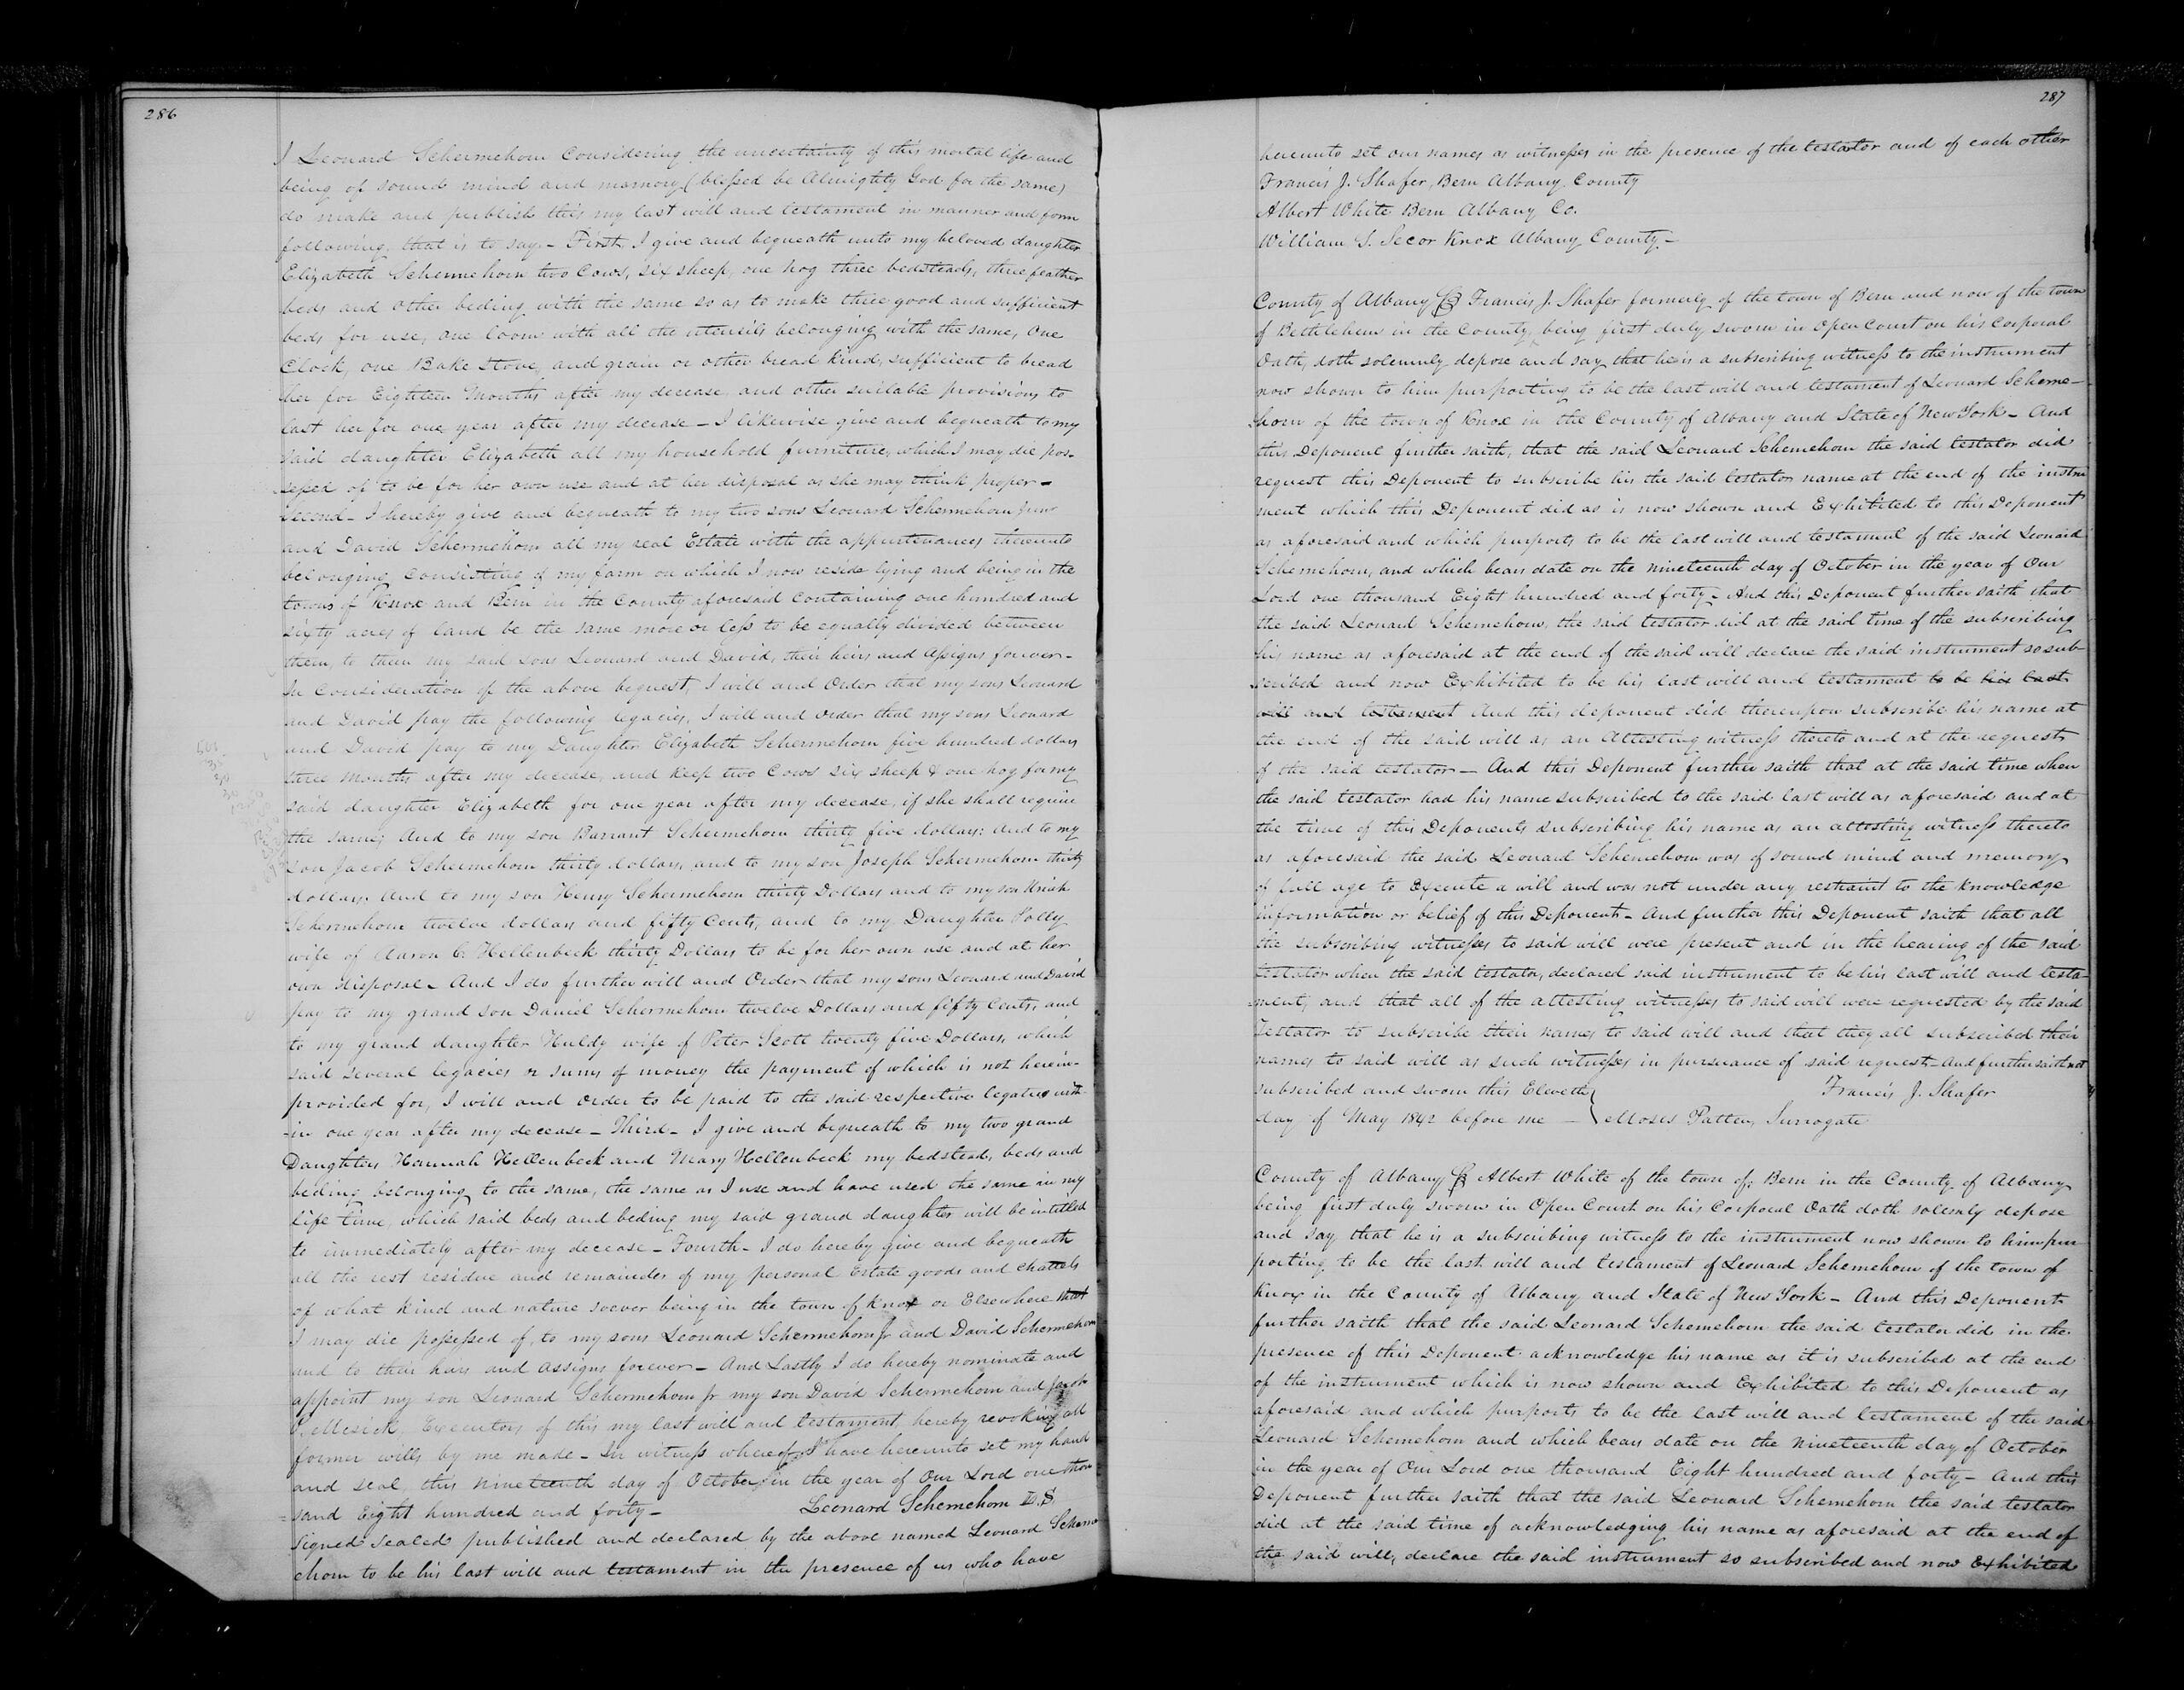 286
I Leonard Schermehorn Considering the uncertainty of this mortal life and
being of sound mind and mamory (blessed be Almighty God for the same)
do make and publish this my last will and testament in manner and form
following, that is to say - First, I give and bequeath unto my beloved daughter
Elizabeth Schermehorn two Cows, six sheep, one hog three bedsteads, three feather
beds and other beding with the same so as to make three good and sufficient
beds for use, one loom with all the utensils belonging with the same, One
Clock, one Bake Stove, and grain or other bread kind, sufficient to bread
her for Eighteen Months after my decease, and other suitable provisions to
last her for one year after my decease - I likewise give and bequeath to my
said daughter Elizabeth all my household furniture, which I may die pos-
sessed of to be for her own use and at her disposal as she may think proper -
Second - I hereby give and bequeath to my two sons Leonard Schermehorn Junr
and David Schermehorn all my real Estate with the appurtenances thereunto
belonging, Consisting of my farm on which I now reside lying and being in the
towns of Knox and Bern in the County aforesaid Containing one hundred and
sixty acres of land be the same more or less to be equally divided between
them, to them my said sons Leonard and David, their heirs and assigns forever -
In Consideration of the above bequest, I will and Order that my sons Leonard
and David pay the following legacies, I will and Order that my sons Leonard
and David pay to my Daughter Elizabeth Schermehorn five hundred dollars
three months after my decease, and keep two Cows six sheep & one hog for my
said daughter Elizabeth for one year after my decease, if she shall require
the same; And to my son Barrant Schermehorn thirty five dollars: And to my
son Jacob Schermehorn thirty dollars, and to my son Joseph Schermehorn thirty
dollars. And to my son Henry Schermehorn thirty Dollars and to my son Uriah
Schermehorn twelve dollars and fifty Cents, and to my Daughter Polly
wife of Aaron C. Hellenbeck thirty Dollars to be for her own use and at her
own disposal - And I do further will and Order that my sons Leonard and David
pay to my grand son Daniel Schermehorn twelve Dollars and fifty Cents, and
to my grand daughter Huldy wife of Peter Scott twenty five Dollars, which
said several legacies or sums of money the payment of which is not herein-
provided for, I will and Order to be paid to the said respective legatees with-
-in one year after my decease - Third - I give and bequeath to my two grand
Daughters Hannah Hellenbeck and Mary Hellenbeck my bedstead, beds and
beding belonging to the same, the same as I use and have used the same in my
life time, which said beds and beding my said grand daughters will be intitled
to immediately after my decease - Fourth - I do hereby give and bequeath
all the rest residue and remainder of my personal Estate goods and chattels
of what kind and nature soever being in the town of Knox or Elsewhere that
I may die possessed of, to my sons Leonard Schermehorn Jr and David Schermehorn
and to their hairs and assigns forever - And Lastly I do hereby nominate and
appoint my son Leonard Schermehorn Jr my son David Schermehorn and Jacob
Messick, Executors of this my last will and testament hereby revoking all
former wills by me made - In witness whereof I have hereunto set my hand
and seal, this nineteenth day of October in the year of Our Lord one thou
=sand Eight hundred and forty - Leonard Schemehorn L.S.
Signed Sealed published and declared by the above named Leonard Scherm
ehorn to be his last will and testament in the presence of us who have
287
hereunto set our names as witnesses in the presence of the testator and of each other
Francis J. Shafer, Bern Albany County
Albert White Bern Albany Co.
William S. Secor Knox Albany County -
County of Albany SS Francis J. Shafer formerly of the town of Bern and now of the town
of Bethlehem in the County, being first duly sworn in Open Court on his Corporal
Oath, doth solemnly depose and say that he is a subscribing witness to the instrument
now shown to him purporting to be the last will and testament of Leonard Scheme-
horn of the town of Knox in the County of Albany and State of New York - And
this Deponent further saith, that the said Leonard Schemehorn the said testator did
request this Deponent to subscribe his the said testator name at the end of the instru
ment which this Deponent did as is now shown and Exhibited to this Deponent
as aforesaid and which purports to be the last will and testament of the said Leonard
Schemehorn, and which bears date on the nineteenth day of October in the year of Our
Lord one thousand Eight hundred and forty - And this Deponent further saith that
the said Leonard Schemehorn, the said testator did at the said time of the subscribing
his name as aforesaid at the end of the said will declare the said instrument so sub-
scribed and now Exhibited to be his last will and testament to be his last
will and testament And this deponent did thereupon subscribe his name at
the end of the said will as an Attesting witness thereto and at the request
of the said testator - And this Deponent further saith that at the said time when
the said testator had his name subscribed to the said last will as aforesaid and at
the time of this Deponents subscribing his name as an attesting witness thereto
as aforesaid the said Leonard Schemehorn was of sound mind and memory
of full age to Execute a will and was not under any restraint to the knowledge
information or belief of this Deponent - And further this Deponent saith that all
the subscribing witnesses to said will were present and in the hearing of the said
testator when the said testator, declared said instrument to be his last will and testa-
=ment, and that all of the attesting witnesses to said will were requested by the said
Testator to subscribe their names to said will and that they all subscribed their
names to said will as such witnesses in pursuance of said request - And further saith not
subscribed and sworn this Eleventh Francis J. Shafer
day of May 1842 before me - Moses Patten, Surrogate
County of Albany SS Albert White of the town of Bern in the County of Albany
being first duly sworn in Open Court on his Corporal Oath doth solemly depose
and say that he is a subscribing witness to the instrument now shown to him pur
porting to be the last will and testament of Leonard Schemehorn of the town of
Knox in the County of Albany and State of New York - And this Deponent
further saith that the said Leonard Schemehorn the said testator did in the
presence of this Deponent acknowledge his name as it is subscribed at the end
of the instrument which is now shown and Exhibited to this Deponent as
aforesaid and which purports to be the last will and testament of the said
Leonard Schemehorn and which bears date on the nineteenth day of October
in the year of Our Lord one thousand Eight hundred and forty - And this
Deponent further saith that the said Leonard Schemehorn the said testator
did at the said time of acknowledging his name as aforesaid at the end of
the said will, declare the said instrument so subscribed and now Exhibited